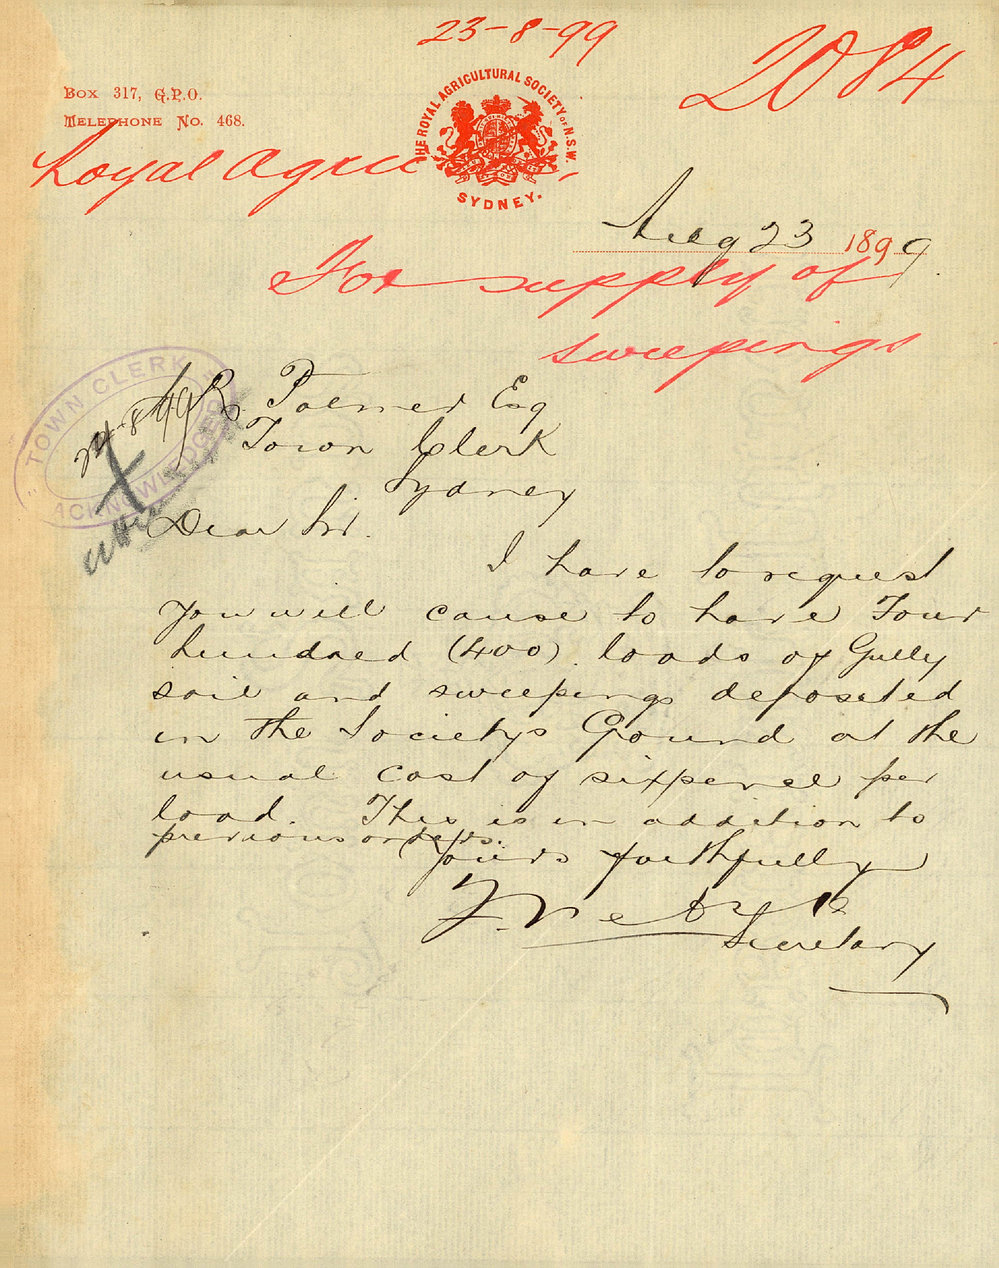 23-8-99
2084
Box 317, G.P.O.
Telephone No. 468.
THE ROYAL AGRICULTURAL SOCIETY OF N.S.W.
SYDNEY.
Royal Agric
Aug 23 1899
For supply of
sweepings
TOWN CLERK
24-8-99
ACKNOWLEDGED
R Palmer Esq
Town Clerk
Sydney
Dear Sir.
I have to request
you will cause to have Four
hundred (400) loads of Gully
soil and sweepings deposited
in the Societys Ground at the
usual cost of sixpence per
load. This is in addition to
previous orders.
Yours faithfully
Secretary